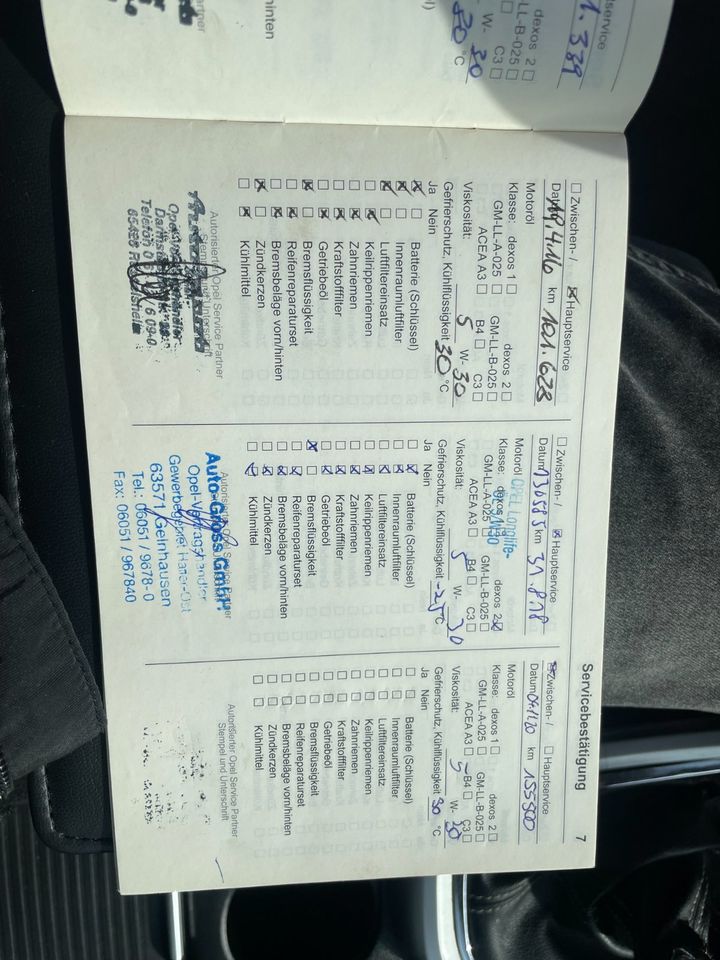 Servicebestätigung 7
Zwischen- / Hauptservice
19.4.16 km 101.628
Motoröl
Klasse: dexos 1 dexos 2
GM-LL-A-025 GM-LL-B-025
ACEA A3 B4 C3
Viskosität: 5 W- 30
Gefrierschutz, Kühlflüssigkeit 30 °C
Ja Nein
Batterie (Schlüssel)
Innenraumluftfilter
Luftfiltereinsatz
Keilrippenriemen
Zahnriemen
Kraftstofffilter
Getriebeöl
Bremsflüssigkeit
Reifenreparaturset
Bremsbeläge vorn/hinten
Zündkerzen
Kühlmittel
Autorisierter Opel Service Partner
Stempel und Unterschrift
Zwischen- / Hauptservice
Datum 130585 km 31.8.18
Motoröl OPEL Longlife-
Klasse: dexos 1 dexos 2
GM-LL-A-025 GM-LL-B-025
ACEA A3 B4 C3
Viskosität: 5 W- 30
Gefrierschutz, Kühlflüssigkeit -25 °C
Ja Nein
Batterie (Schlüssel)
Innenraumluftfilter
Luftfiltereinsatz
Keilrippenriemen
Zahnriemen
Kraftstofffilter
Getriebeöl
Bremsflüssigkeit
Reifenreparaturset
Bremsbeläge vorn/hinten
Zündkerzen
Kühlmittel
Auto-Gross GmbH
Opel-Vertragshändler
Gewerbegebiet Hailer-Ost
63571 Gelnhausen
Tel.: 06051 / 9678-0
Fax: 06051 / 967840
Zwischen- / Hauptservice
Datum km 155500
Motoröl
Klasse: dexos 1 dexos 2
GM-LL-A-025 GM-LL-B-025
ACEA A3 B4 C3
Viskosität: 5 W- 30
Gefrierschutz, Kühlflüssigkeit 30 °C
Ja Nein
Batterie (Schlüssel)
Innenraumluftfilter
Luftfiltereinsatz
Keilrippenriemen
Zahnriemen
Kraftstofffilter
Getriebeöl
Bremsflüssigkeit
Reifenreparaturset
Bremsbeläge vorn/hinten
Zündkerzen
Kühlmittel
Autorisierter Opel Service Partner
Stempel und Unterschrift